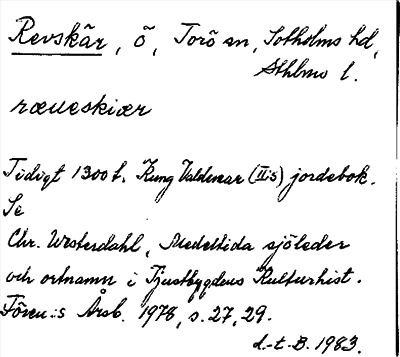 Revskär, ö, Torö sn, Sotholms hd,
Sthlms l.
ræueskiær
Tidigt 1300 t. Kung Valdemar (II:s) jordebok.
Se
Chr. Westerdahl, Medeltida sjöleder
och ortnamn i Tjustbygdens Kulturhist.
Fören:s Årsb. 1978, s. 27, 29.
d.-t.-B. 1983.